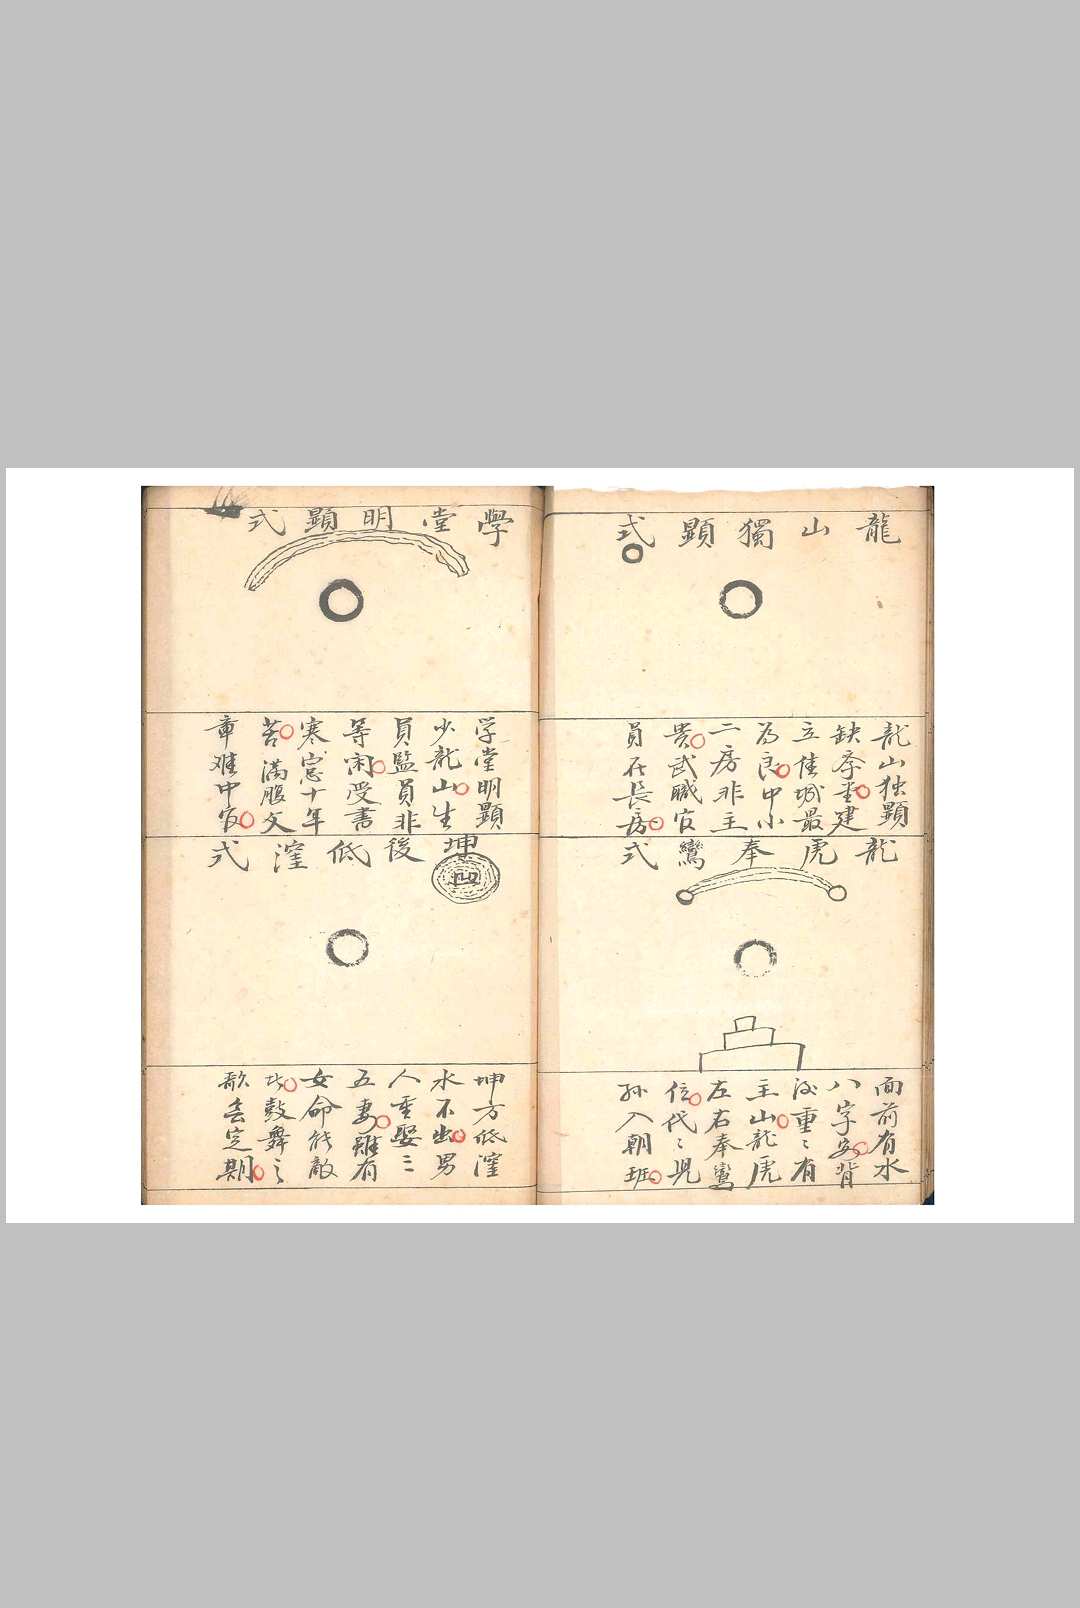 龍山獨顯式
龍山独顯
缺序堂建
立佳城最
为良中小
二房非主
贵武職官
員在長房
龍虎奉鸞式
面前有水
八字安背
後重〻有
主山龍虎
左右奉鸞
位代〻児
孙入朝班
學堂明顯式
学堂明顯
少龍山生
員監員非
等闲受書
寒窓十年
苦满腹文
章难中官
坤後低窪式
凹
坤方低窪
水不出男
人重娶三
五妻雖有
女命能敵
鼓舞之
歌去定期